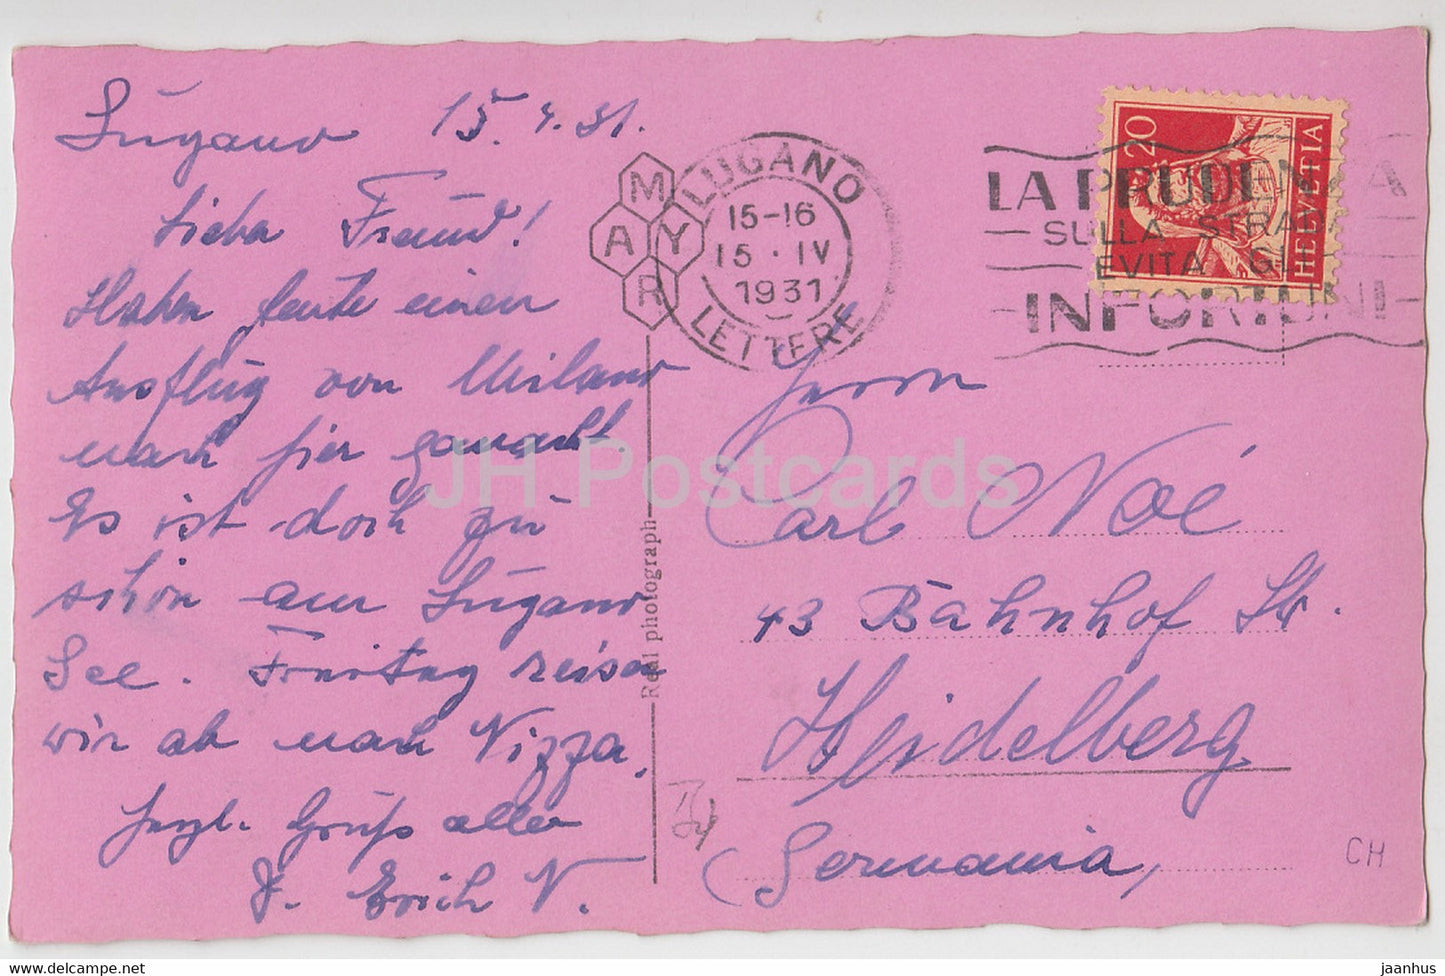 Lugano 15.4.31.
Liebe Freund!
Haben heute einen
Ausflug von Milano
nach hier gemacht.
Es ist doch zu
schön am Lugano
See. Freitag reisen
wir ab nach Nizza.
Herzl. Grüße allen
Erich N.
MARY
LUGANO
15-16
15·IV
1931
LETTERE
LA PRUDENZA
— SULLA STRADA
EVITA GLI
— INFORTUNI —
20
HELVETIA
Herrn
Carl Noé
43 Bahnhof Str.
Heidelberg
Germania,
CH
Real photograph
JH Postcards
www.delcampe.net
jaanhus